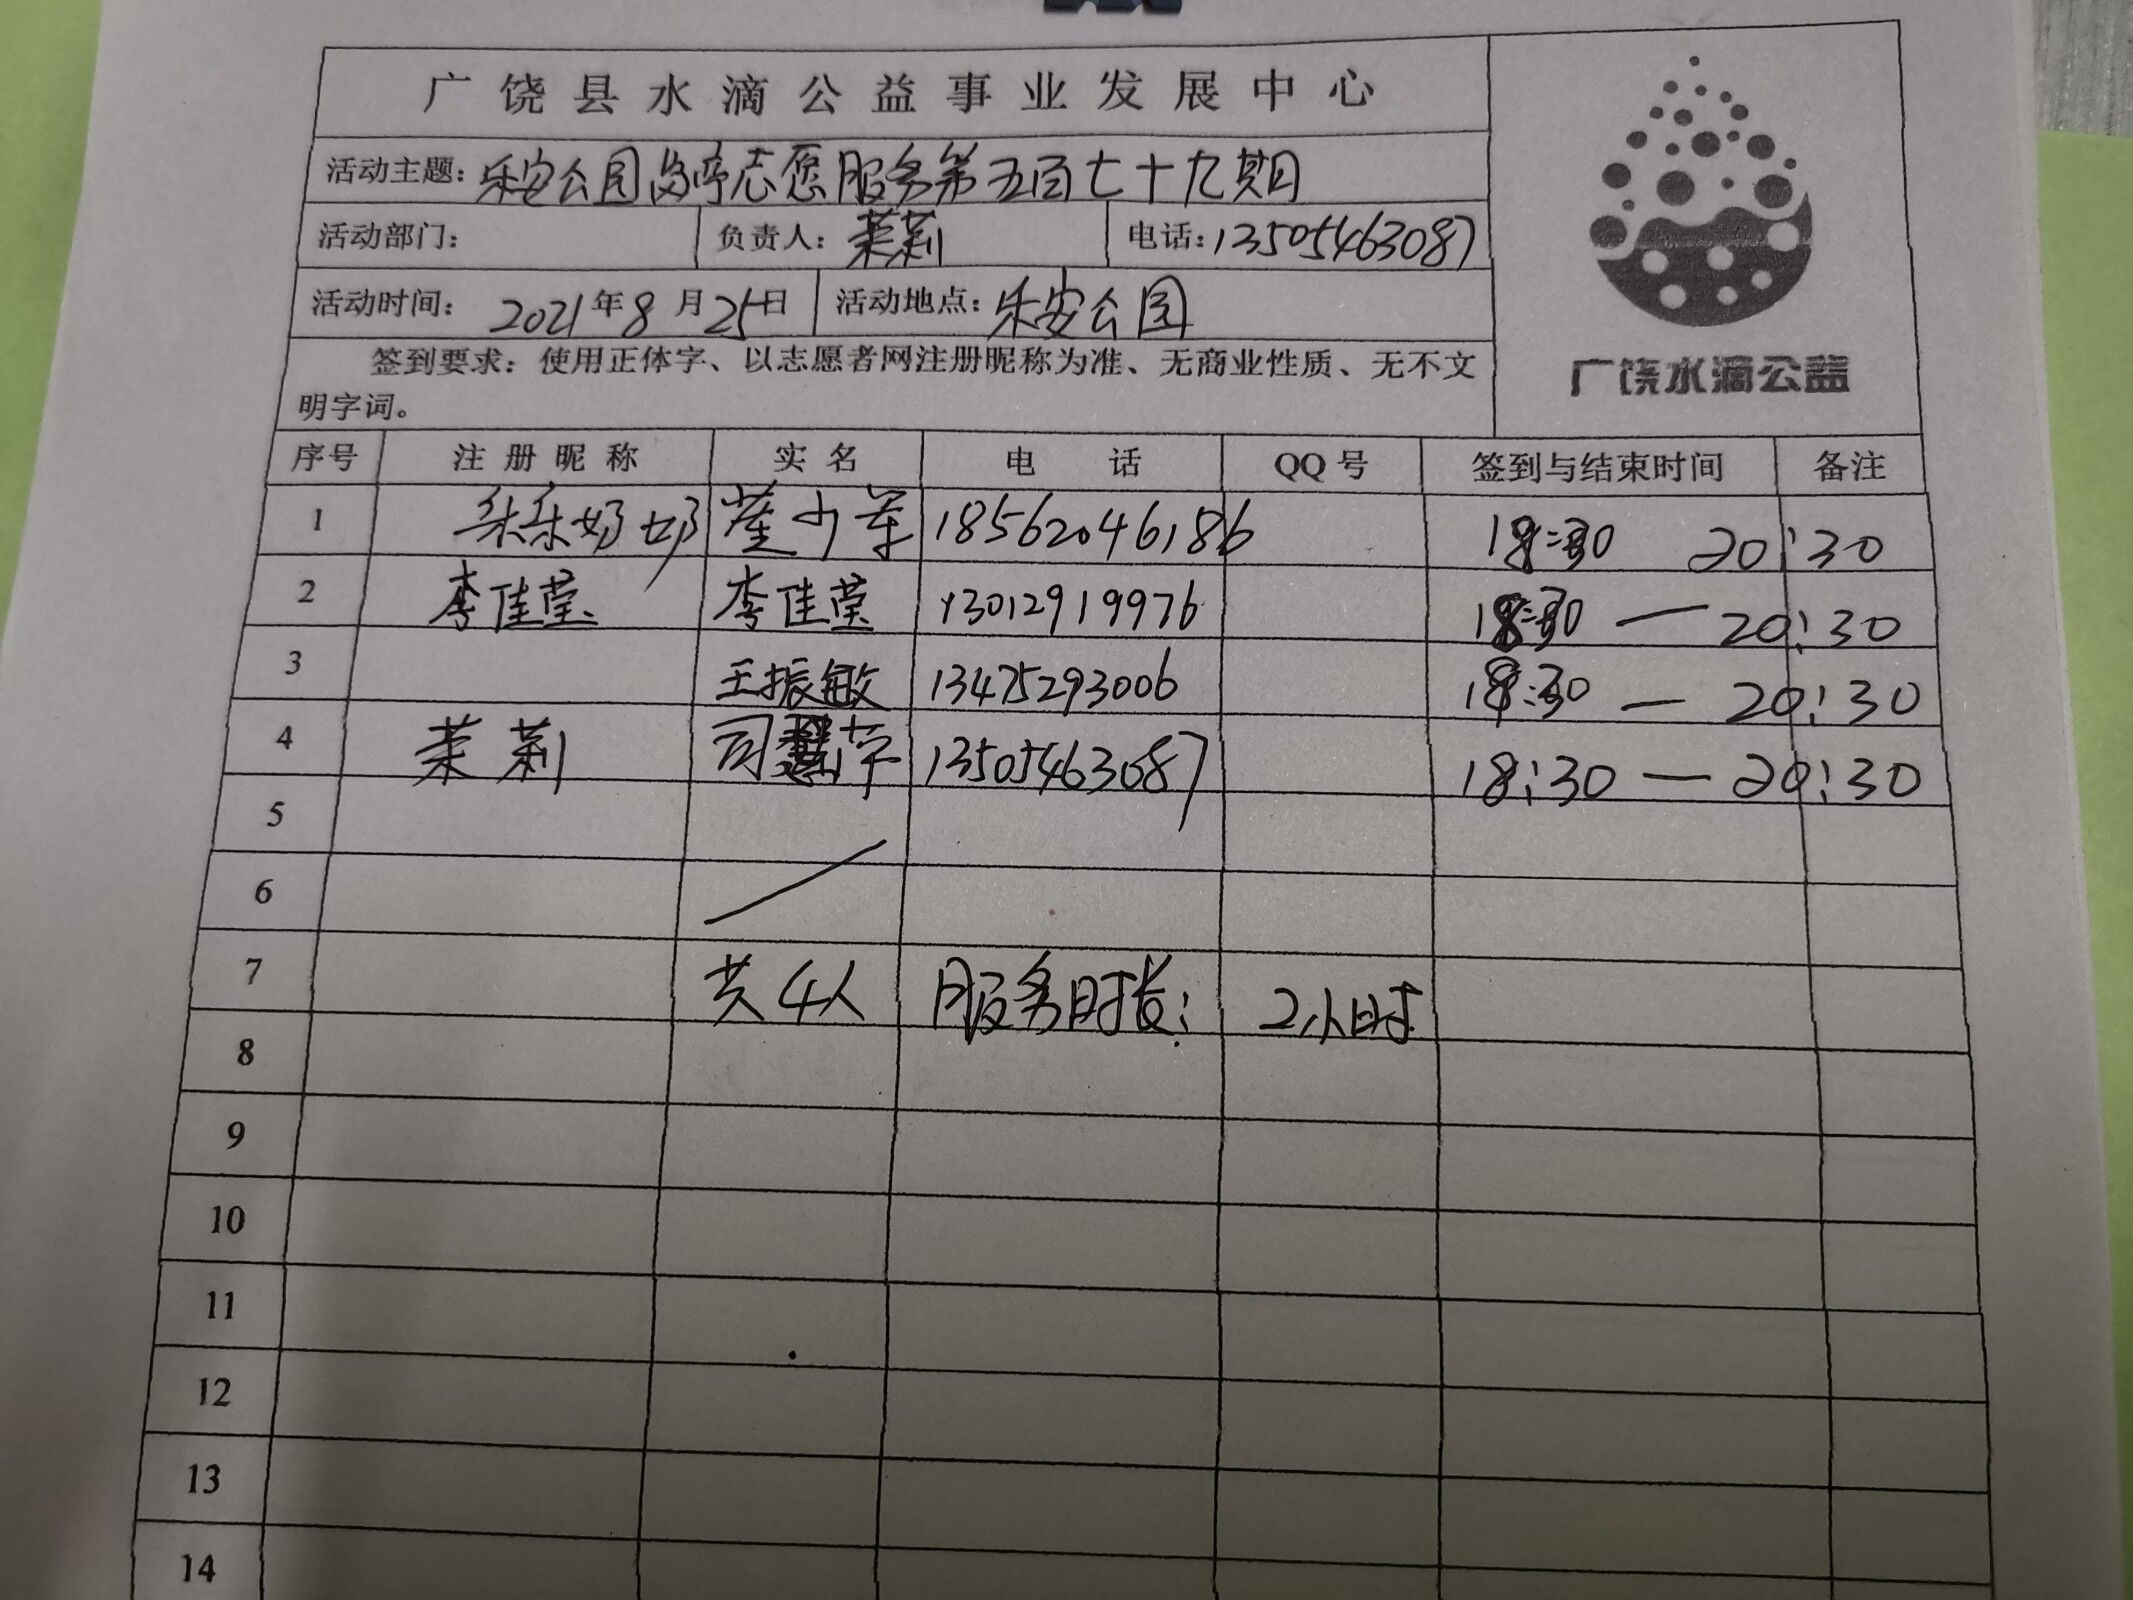 广饶县水滴公益事业发展中心
活动主题：乐安公园岗亭志愿服务第五百七十九期
活动部门： 负责人：茉莉 电话：13505463087
活动时间： 2021年8月25日 活动地点：乐安公园
签到要求：使用正体字、以志愿者网注册昵称为准、无商业性质、无不文
明字词。
广饶水滴公益
序号 注册昵称 实名 电话 QQ号 签到与结束时间 备注
1 乐乐奶奶 18562046186 18:30 20:30
2 李佳莹 李佳莹 13012919976 18:30 — 20:30
3 王振敏 13475293006 18:30 — 20:30
4 茉莉 司 13505463087 18:30 — 20:30
5
6
7 共4人 服务时长： 2小时
8
9
10
11
12
13
14